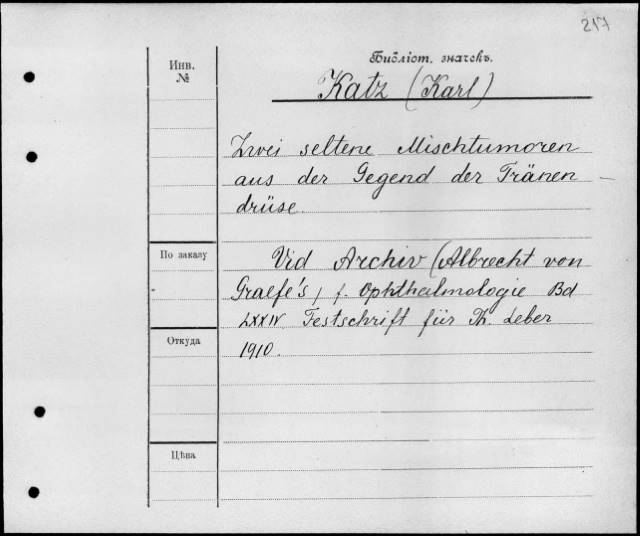 217
Инв.
№
Библіот. значекъ.
Katz (Karl)
Zwei seltene Mischtumoren
aus der Gegend der Tränen-
drüse.
По заказу
Vid Archiv (Albrecht von
Graefe's) f. Ophthalmologie Bd
LXXIV Festschrift für Th. Leber
Откуда
1910.
Цѣна